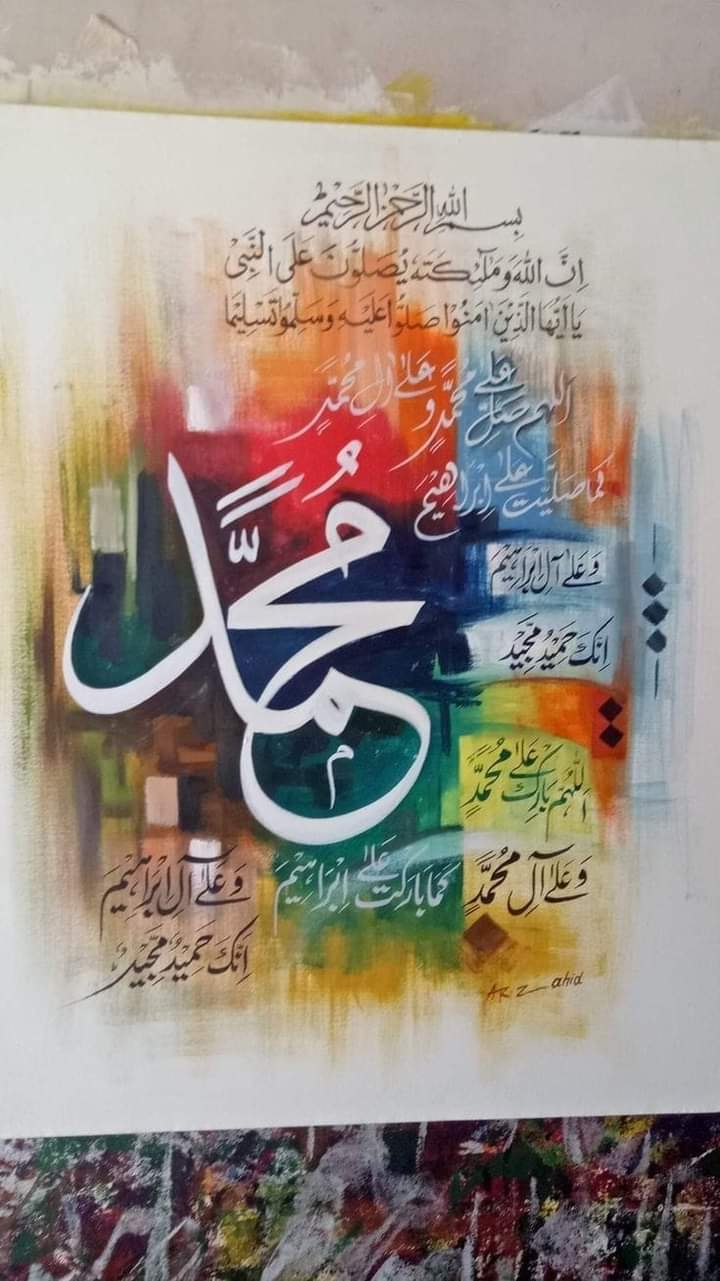 بِسْمِ اللهِ الرَّحْمٰنِ الرَّحِيْمِ
اِنَّ اللهَ وَمَلٰٓئِكَتَهٗ يُصَلُّوْنَ عَلَى النَّبِىْ
يَا اَيُّهَا الَّذِيْنَ اٰمَنُوْا صَلُّوْا عَلَيْهِ وَسَلِّمُوْا تَسْلِيْمَا
اَللّٰهُمَّ صَلِّ عَلٰى مُحَمَّدٍ وَّ عَلٰى اٰلِ مُحَمَّدٍ
كَمَا صَلَّيْتَ عَلٰى اِبْرَاهِيْمَ
وَعَلٰى آلِ اِبْرَاهِيْمَ
اِنَّكَ حَمِيْدٌ مَّجِيْدٌ
مُحَمَّدٌ
اَللّٰهُمَّ بَارِكْ عَلٰى مُحَمَّدٍ
وَعَلٰى آلِ مُحَمَّدٍ
كَمَا بَارَكْتَ عَلٰى اِبْرَاهِيْمَ
وَعَلٰى آلِ اِبْرَاهِيْمَ
اِنَّكَ حَمِيْدٌ مَّجِيْدٌ
AR Zahid